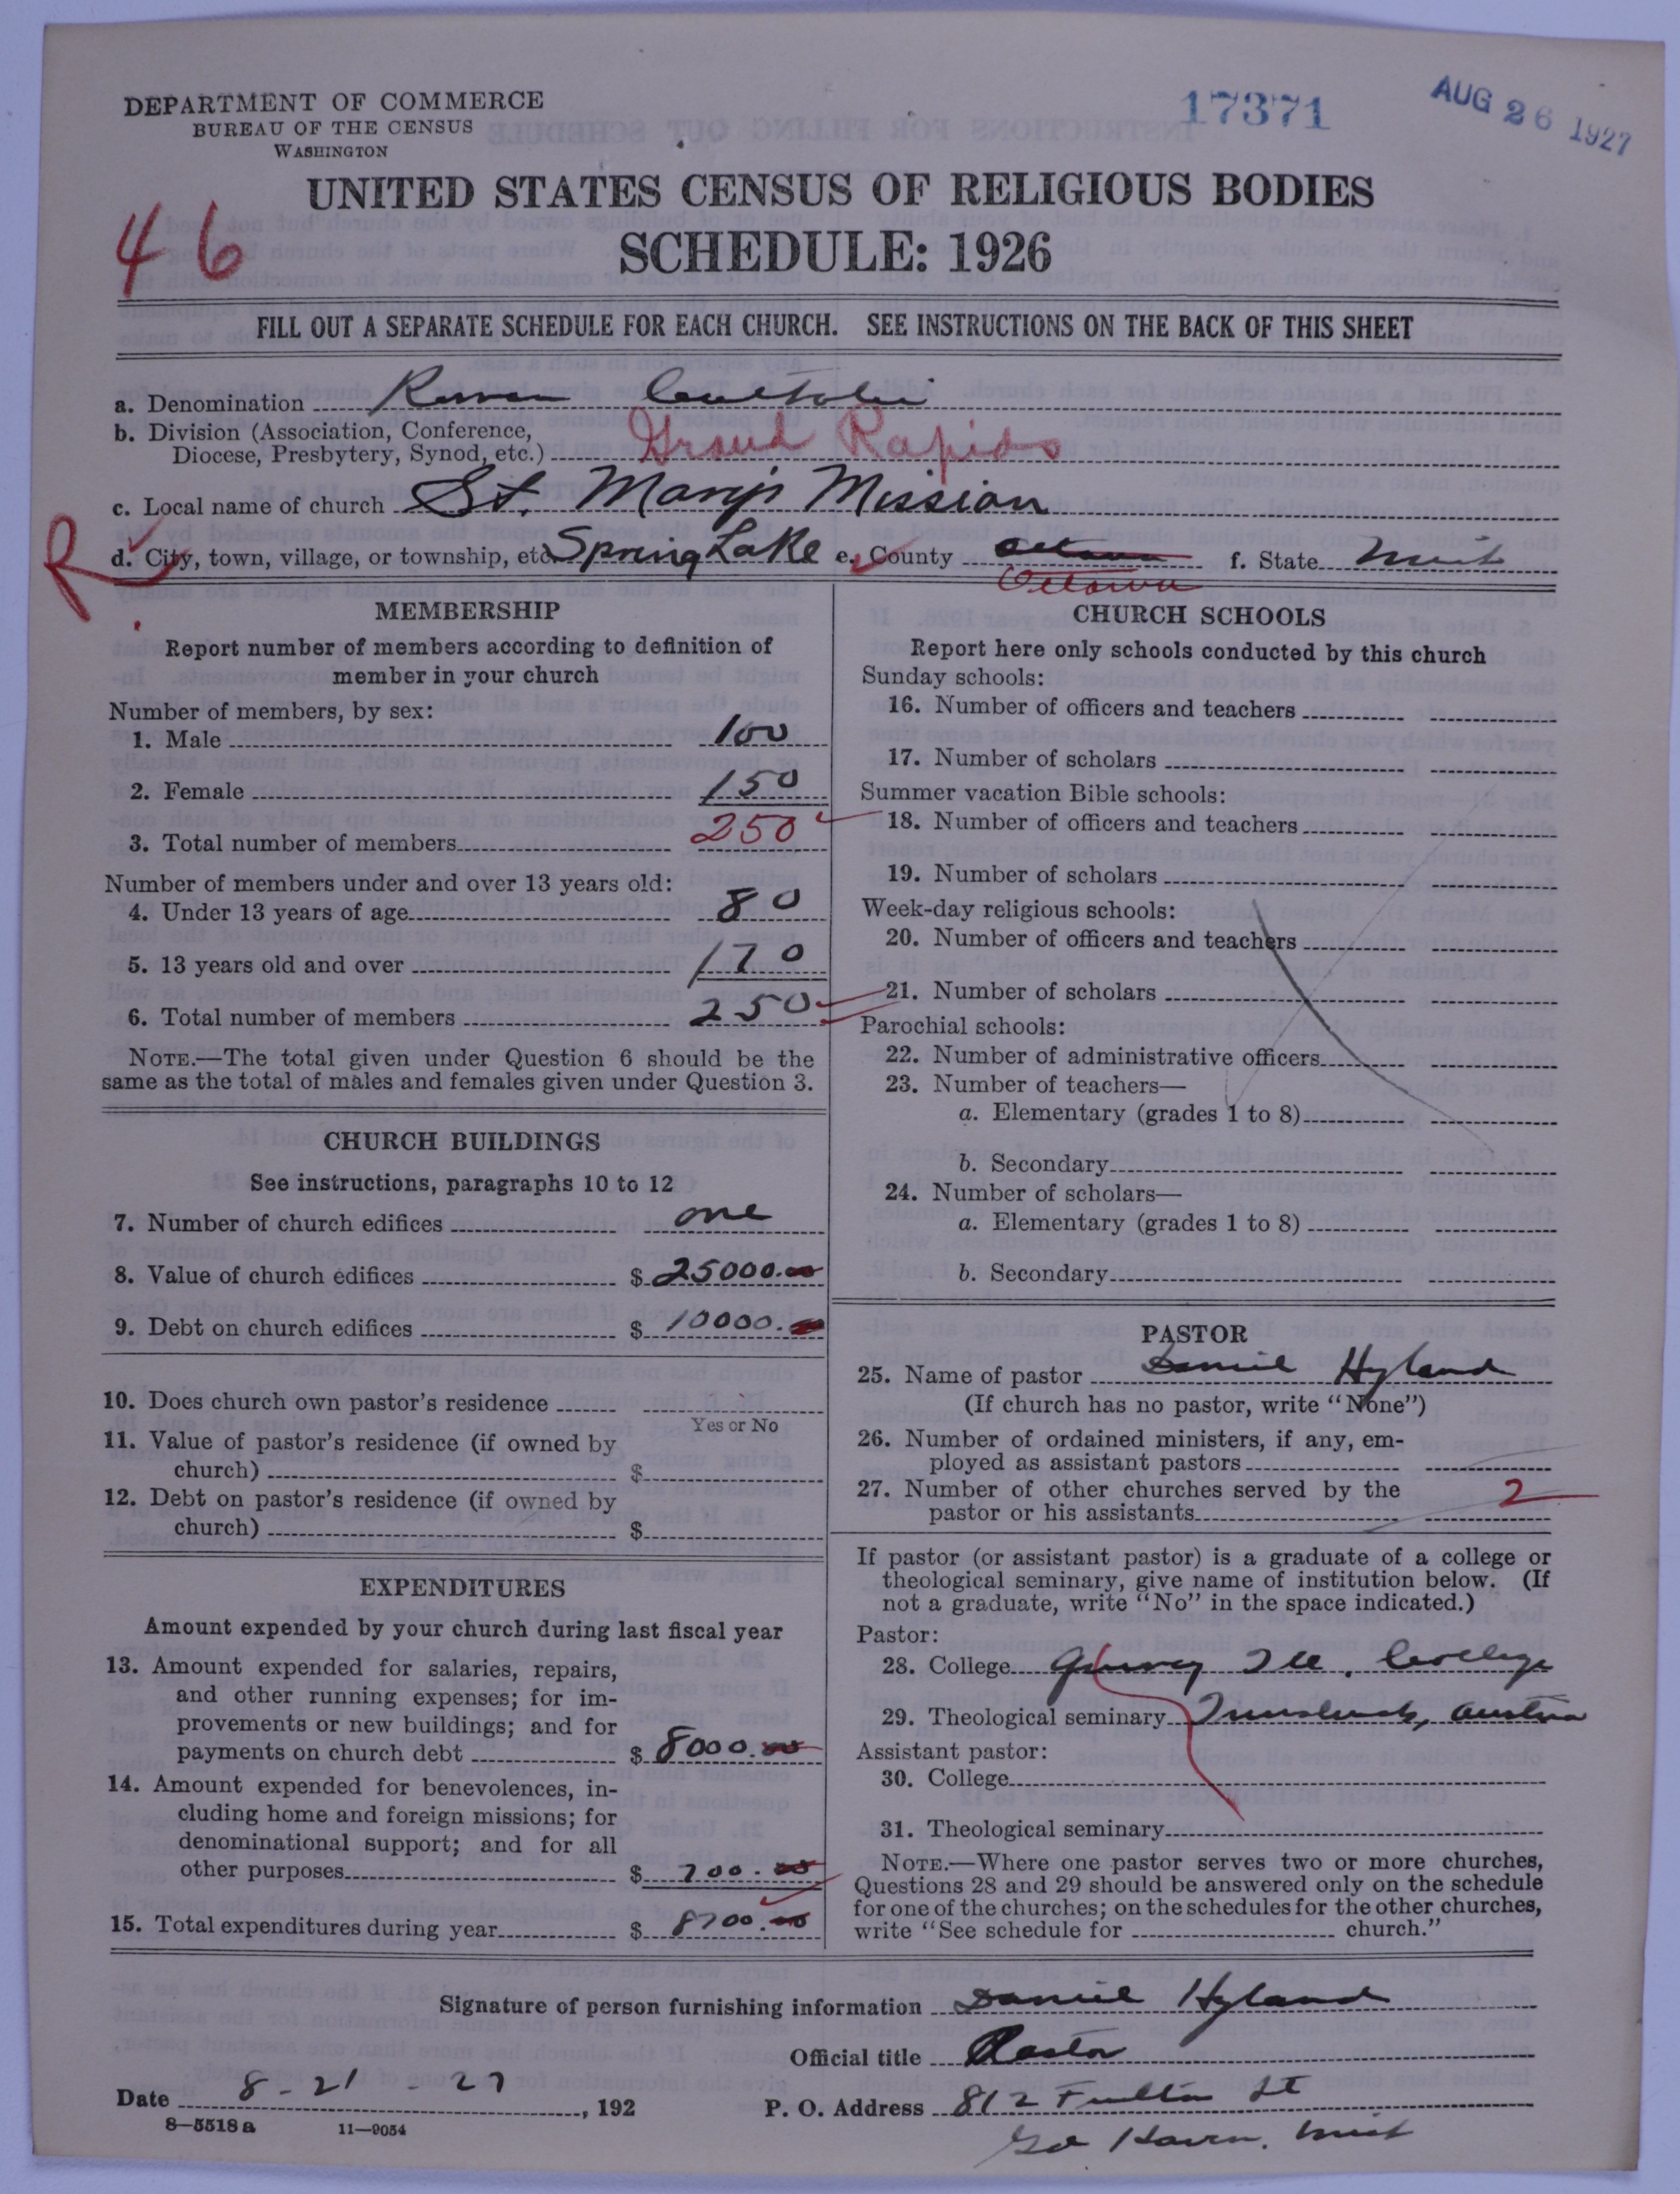 DEPARTMENT OF COMMERCE
BUREAU OF THE CENSUS
WASHINGTON
17371
AUG 26 1927
UNITED STATES CENSUS OF RELIGIOUS BODIES
SCHEDULE: 1926
46
FILL OUT A SEPARATE SCHEDULE FOR EACH CHURCH. SEE INSTRUCTIONS ON THE BACK OF THIS SHEET
a. Denomination Roman Catholic
b. Division (Association, Conference,
Diocese, Presbytery, Synod, etc.) Grand Rapids
c. Local name of church St. Mary's Mission
R
d. City, town, village, or township, etc. Spring Lake e. County Ottawa f. State Mich
Ottawa
MEMBERSHIP
Report number of members according to definition of
member in your church
Number of members, by sex:
1. Male 100
2. Female 150
3. Total number of members 250
Number of members under and over 13 years old:
4. Under 13 years of age 80
5. 13 years old and over 170
6. Total number of members 250
NOTE.—The total given under Question 6 should be the
same as the total of males and females given under Question 3.
CHURCH BUILDINGS
See instructions, paragraphs 10 to 12
7. Number of church edifices one
8. Value of church edifices $ 25000.00
9. Debt on church edifices $ 10000.00
10. Does church own pastor's residence
Yes or No
11. Value of pastor's residence (if owned by
church) $
12. Debt on pastor's residence (if owned by
church) $
EXPENDITURES
Amount expended by your church during last fiscal year
13. Amount expended for salaries, repairs,
and other running expenses; for im-
provements or new buildings; and for
payments on church debt $ 8000.00
14. Amount expended for benevolences, in-
cluding home and foreign missions; for
denominational support; and for all
other purposes $ 700.00
15. Total expenditures during year $ 8700.00
CHURCH SCHOOLS
Report here only schools conducted by this church
Sunday schools:
16. Number of officers and teachers
17. Number of scholars
Summer vacation Bible schools:
18. Number of officers and teachers
19. Number of scholars
Week-day religious schools:
20. Number of officers and teachers
21. Number of scholars
Parochial schools:
22. Number of administrative officers
23. Number of teachers—
a. Elementary (grades 1 to 8)
b. Secondary
24. Number of scholars—
a. Elementary (grades 1 to 8)
b. Secondary
PASTOR
25. Name of pastor Daniel Hyland
(If church has no pastor, write "None")
26. Number of ordained ministers, if any, em-
ployed as assistant pastors
27. Number of other churches served by the
pastor or his assistants 2
If pastor (or assistant pastor) is a graduate of a college or
theological seminary, give name of institution below. (If
not a graduate, write "No" in the space indicated.)
Pastor:
28. College Quincy Ill. College
29. Theological seminary Innsbruck, Austria
Assistant pastor:
30. College
31. Theological seminary
NOTE.—Where one pastor serves two or more churches,
Questions 28 and 29 should be answered only on the schedule
for one of the churches; on the schedules for the other churches,
write "See schedule for church."
Signature of person furnishing information Daniel Hyland
Official title Pastor
Date 8-21-27, 192
P. O. Address 812 Fulton St
Gd Haven, Mich
8—5518 a 11—9054